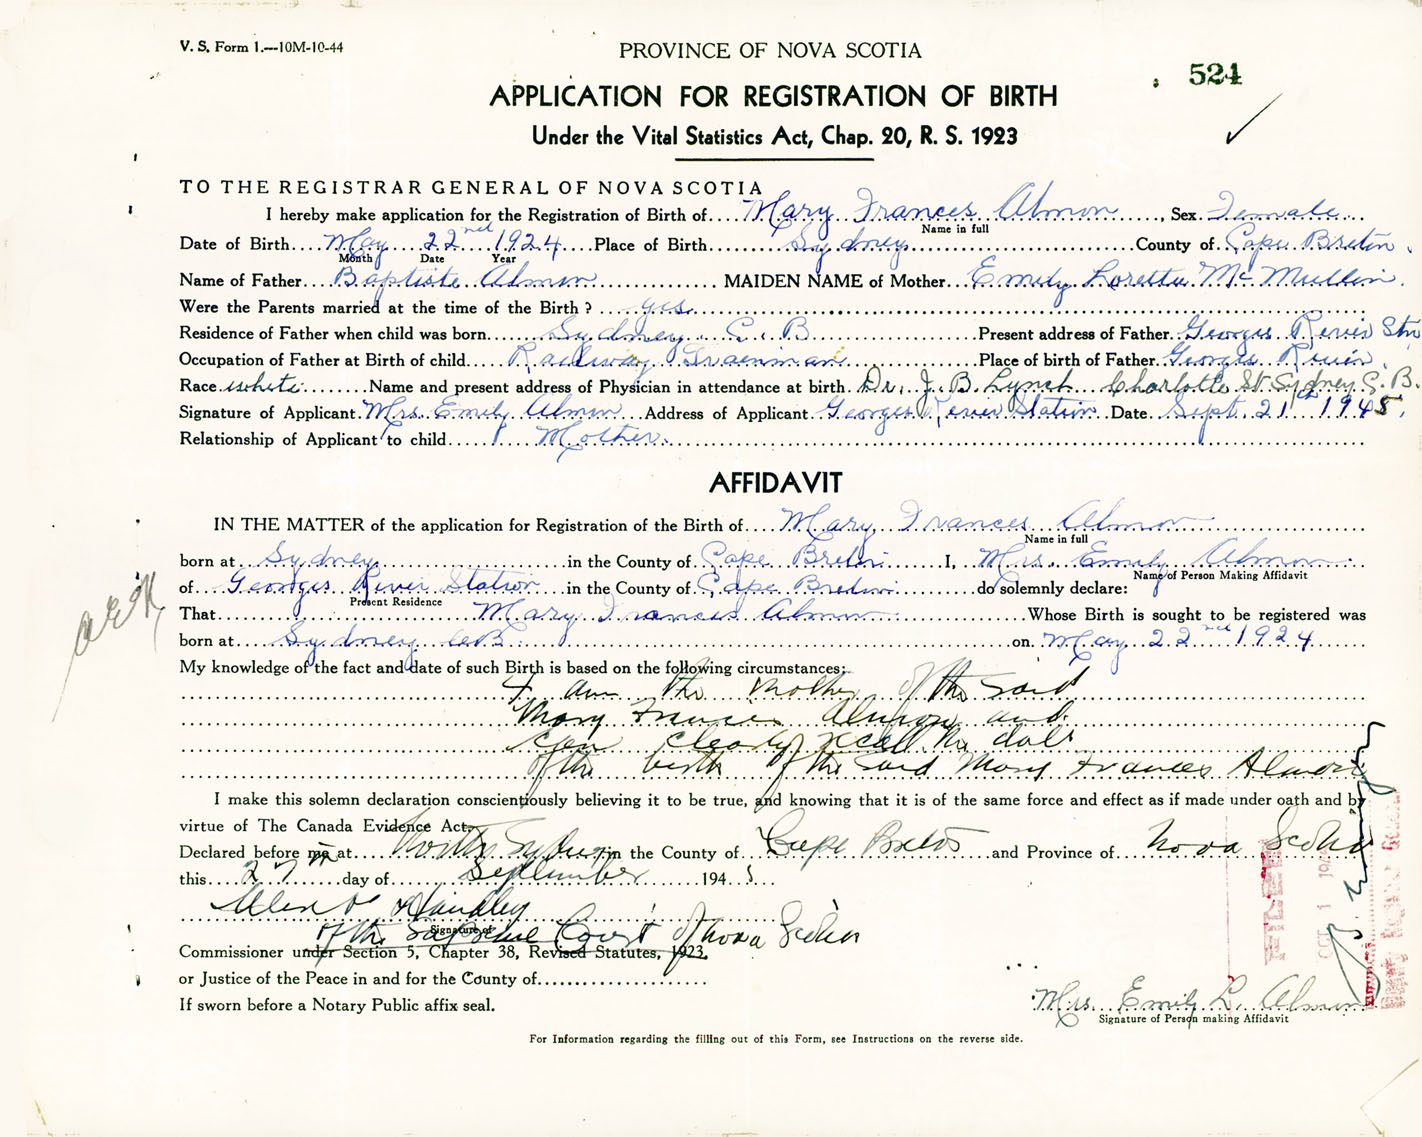 V. S. Form 1.—10M-10-44
PROVINCE OF NOVA SCOTIA
524
APPLICATION FOR REGISTRATION OF BIRTH
Under the Vital Statistics Act, Chap. 20, R. S. 1923
TO THE REGISTRAR GENERAL OF NOVA SCOTIA
I hereby make application for the Registration of Birth of Mary Frances Almon, Sex Female
Name in full
Date of Birth May 22nd 1924 Place of Birth Sydney County of Cape Breton
Month Date Year
Name of Father Baptiste Almon MAIDEN NAME of Mother Emily Loretta McMullin
Were the Parents married at the time of the Birth? yes
Residence of Father when child was born Sydney C.B Present address of Father Georges River Stn
Occupation of Father at Birth of child Railway Trainman Place of birth of Father Georges River
Race white Name and present address of Physician in attendance at birth Dr. J. B. Lynch Charlotte St Sydney C.B.
Signature of Applicant Mrs. Emily Almon Address of Applicant Georges River Station Date Sept. 21st 1945.
Relationship of Applicant to child Mother.
AFFIDAVIT
IN THE MATTER of the application for Registration of the Birth of Mary Frances Almon
Name in full
born at Sydney in the County of Cape Breton I, Mrs. Emily Almon
Name of Person Making Affidavit
of Georges River Station in the County of Cape Breton do solemnly declare:
Present Residence
That Mary Frances Almon Whose Birth is sought to be registered was
born at Sydney CB. on May 22nd 1924
My knowledge of the fact and date of such Birth is based on the following circumstances:
I am the mother of the said
Mary Francis Almon and
can clearly recall the date
of the birth of the said Mary Frances Almon
I make this solemn declaration conscientiously believing it to be true, and knowing that it is of the same force and effect as if made under oath and by
virtue of The Canada Evidence Act.
Declared before me at North Sydney in the County of Cape Breton and Province of Nova Scotia
this 27th day of September 1945
Handley
Signature of
of the Supreme Court of Nova Scotia
Commissioner under Section 5, Chapter 38, Revised Statutes, 1923,
or Justice of the Peace in and for the County of
If sworn before a Notary Public affix seal.
Mrs. Emily L. Almon
Signature of Person making Affidavit
For Information regarding the filling out of this Form, see Instructions on the reverse side.
FILED
OCT 1